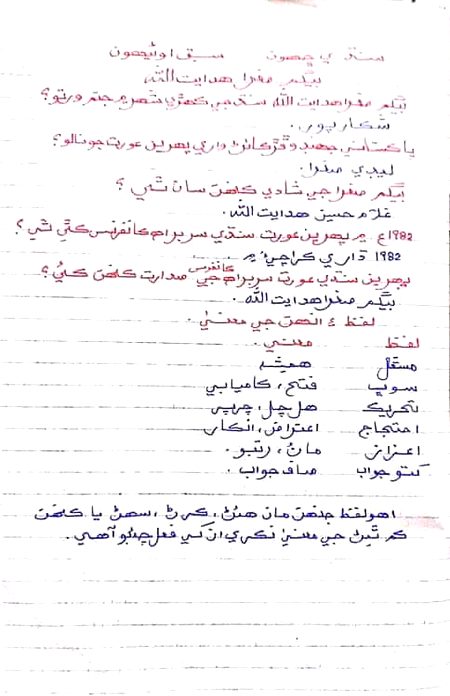 سنڌي ڇهون سبق اوڻيهون
بيگم صغرا هدايت الله
بيگم صغرا هدايت الله سنڌ جي ڪهڙي شهر ۾ جنم ورتو؟
شڪارپور.
پاڪستاني جهنڊو ڦڙڪائڻ واري پهرين عورت جو نالو؟
ليڊي صغرا.
بيگم صغرا جي شادي ڪنهن سان ٿي؟
غلام حسين هدايت الله.
1982ع ۾ پهرين عورت سنڌي سربراهه ڪانفرنس ڪٿي ٿي؟
1982 ڌاري ڪراچيءَ ۾.
پهرين سنڌي عورت سربراهه ڪانفرنس جي صدارت ڪنهن ڪئي؟
بيگم صغرا هدايت الله.
لفظ ۽ انهن جي معنيٰ.
لفظ معنيٰ.
مستقل هميشه
سوڀ فتح، ڪاميابي
تحريڪ هل چل، چرپر
احتجاج اعتراض، انڪار
اعزاز مانُ، رتبو.
کتو جواب صاف جواب.
اهو لفظ جنهن مان هئڻ، ڪرڻ، سهڻ يا ڪنهن
ڪم ٿيڻ جي معنيٰ نڪري ان کي فعل چئبو آهي.